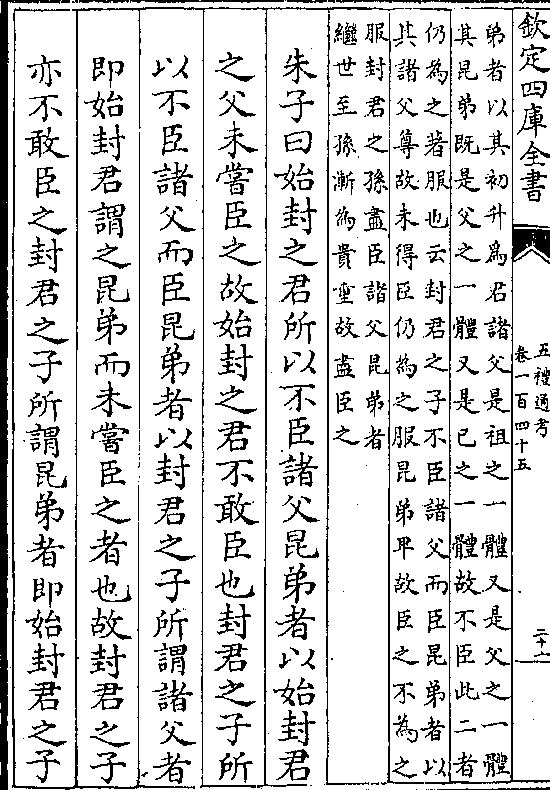 欽定四庫全書
五禮通考
卷一百四十五
二十一
弟者以其初升爲君諸父是祖之一體又是父之一體
其昆弟既是父之一體又是已之一體故不臣此二者
仍為之著服也云封君之子不臣諸父而臣昆弟者以
其諸父尊故未得臣仍為之服昆弟卑故臣之不為之
服封君之孫盡臣諸父昆弟者
繼世至孫漸為貴重故盡臣之
朱子曰始封之君所以不臣諸父昆弟者以始封君
之父未嘗臣之故始封之君不敢臣也封君之子所
以不臣諸父而臣昆弟者以封君之子所謂諸父者
即始封君謂之昆弟而未嘗臣之者也故封君之子
亦不敢臣之封君之子所謂昆弟者即始封君之子